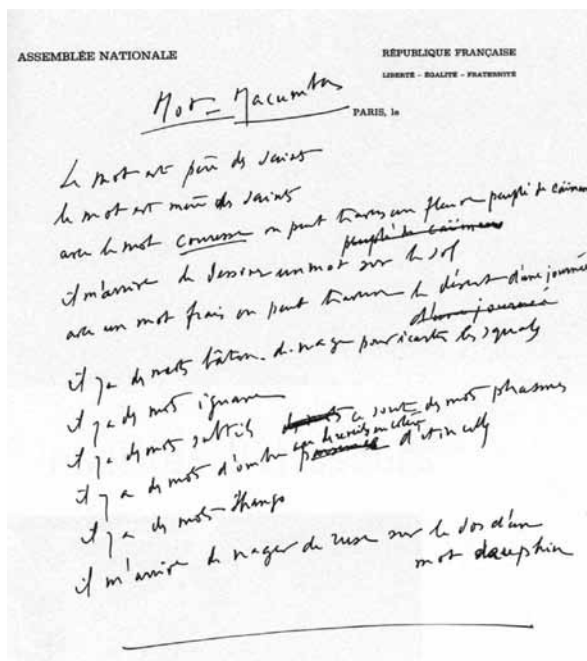 ASSEMBLÉE NATIONALE
RÉPUBLIQUE FRANÇAISE
LIBERTÉ - ÉGALITÉ - FRATERNITÉ
Mot = Macumba
PARIS, le
le mot est père des saints
le mot est mère des saints
avec le mot couresse on peut traverser un fleuve peuplé de caïmans
peuplé de caïmans
il m'arrive de dessiner un mot sur le sol
avec un mot frais on peut traverser le désert d'une journée
d'une journée
il y a des mots bâton-de-nage pour écarter les squales
il y a des mots iguane
il y a des mots subtils ce sont des mots phasmes
il y a des mots d'ombre avec des réveils en colère d'étincelles
il y a des mots Shango
il m'arrive de nager de ruse sur le dos d'un
mot dauphin